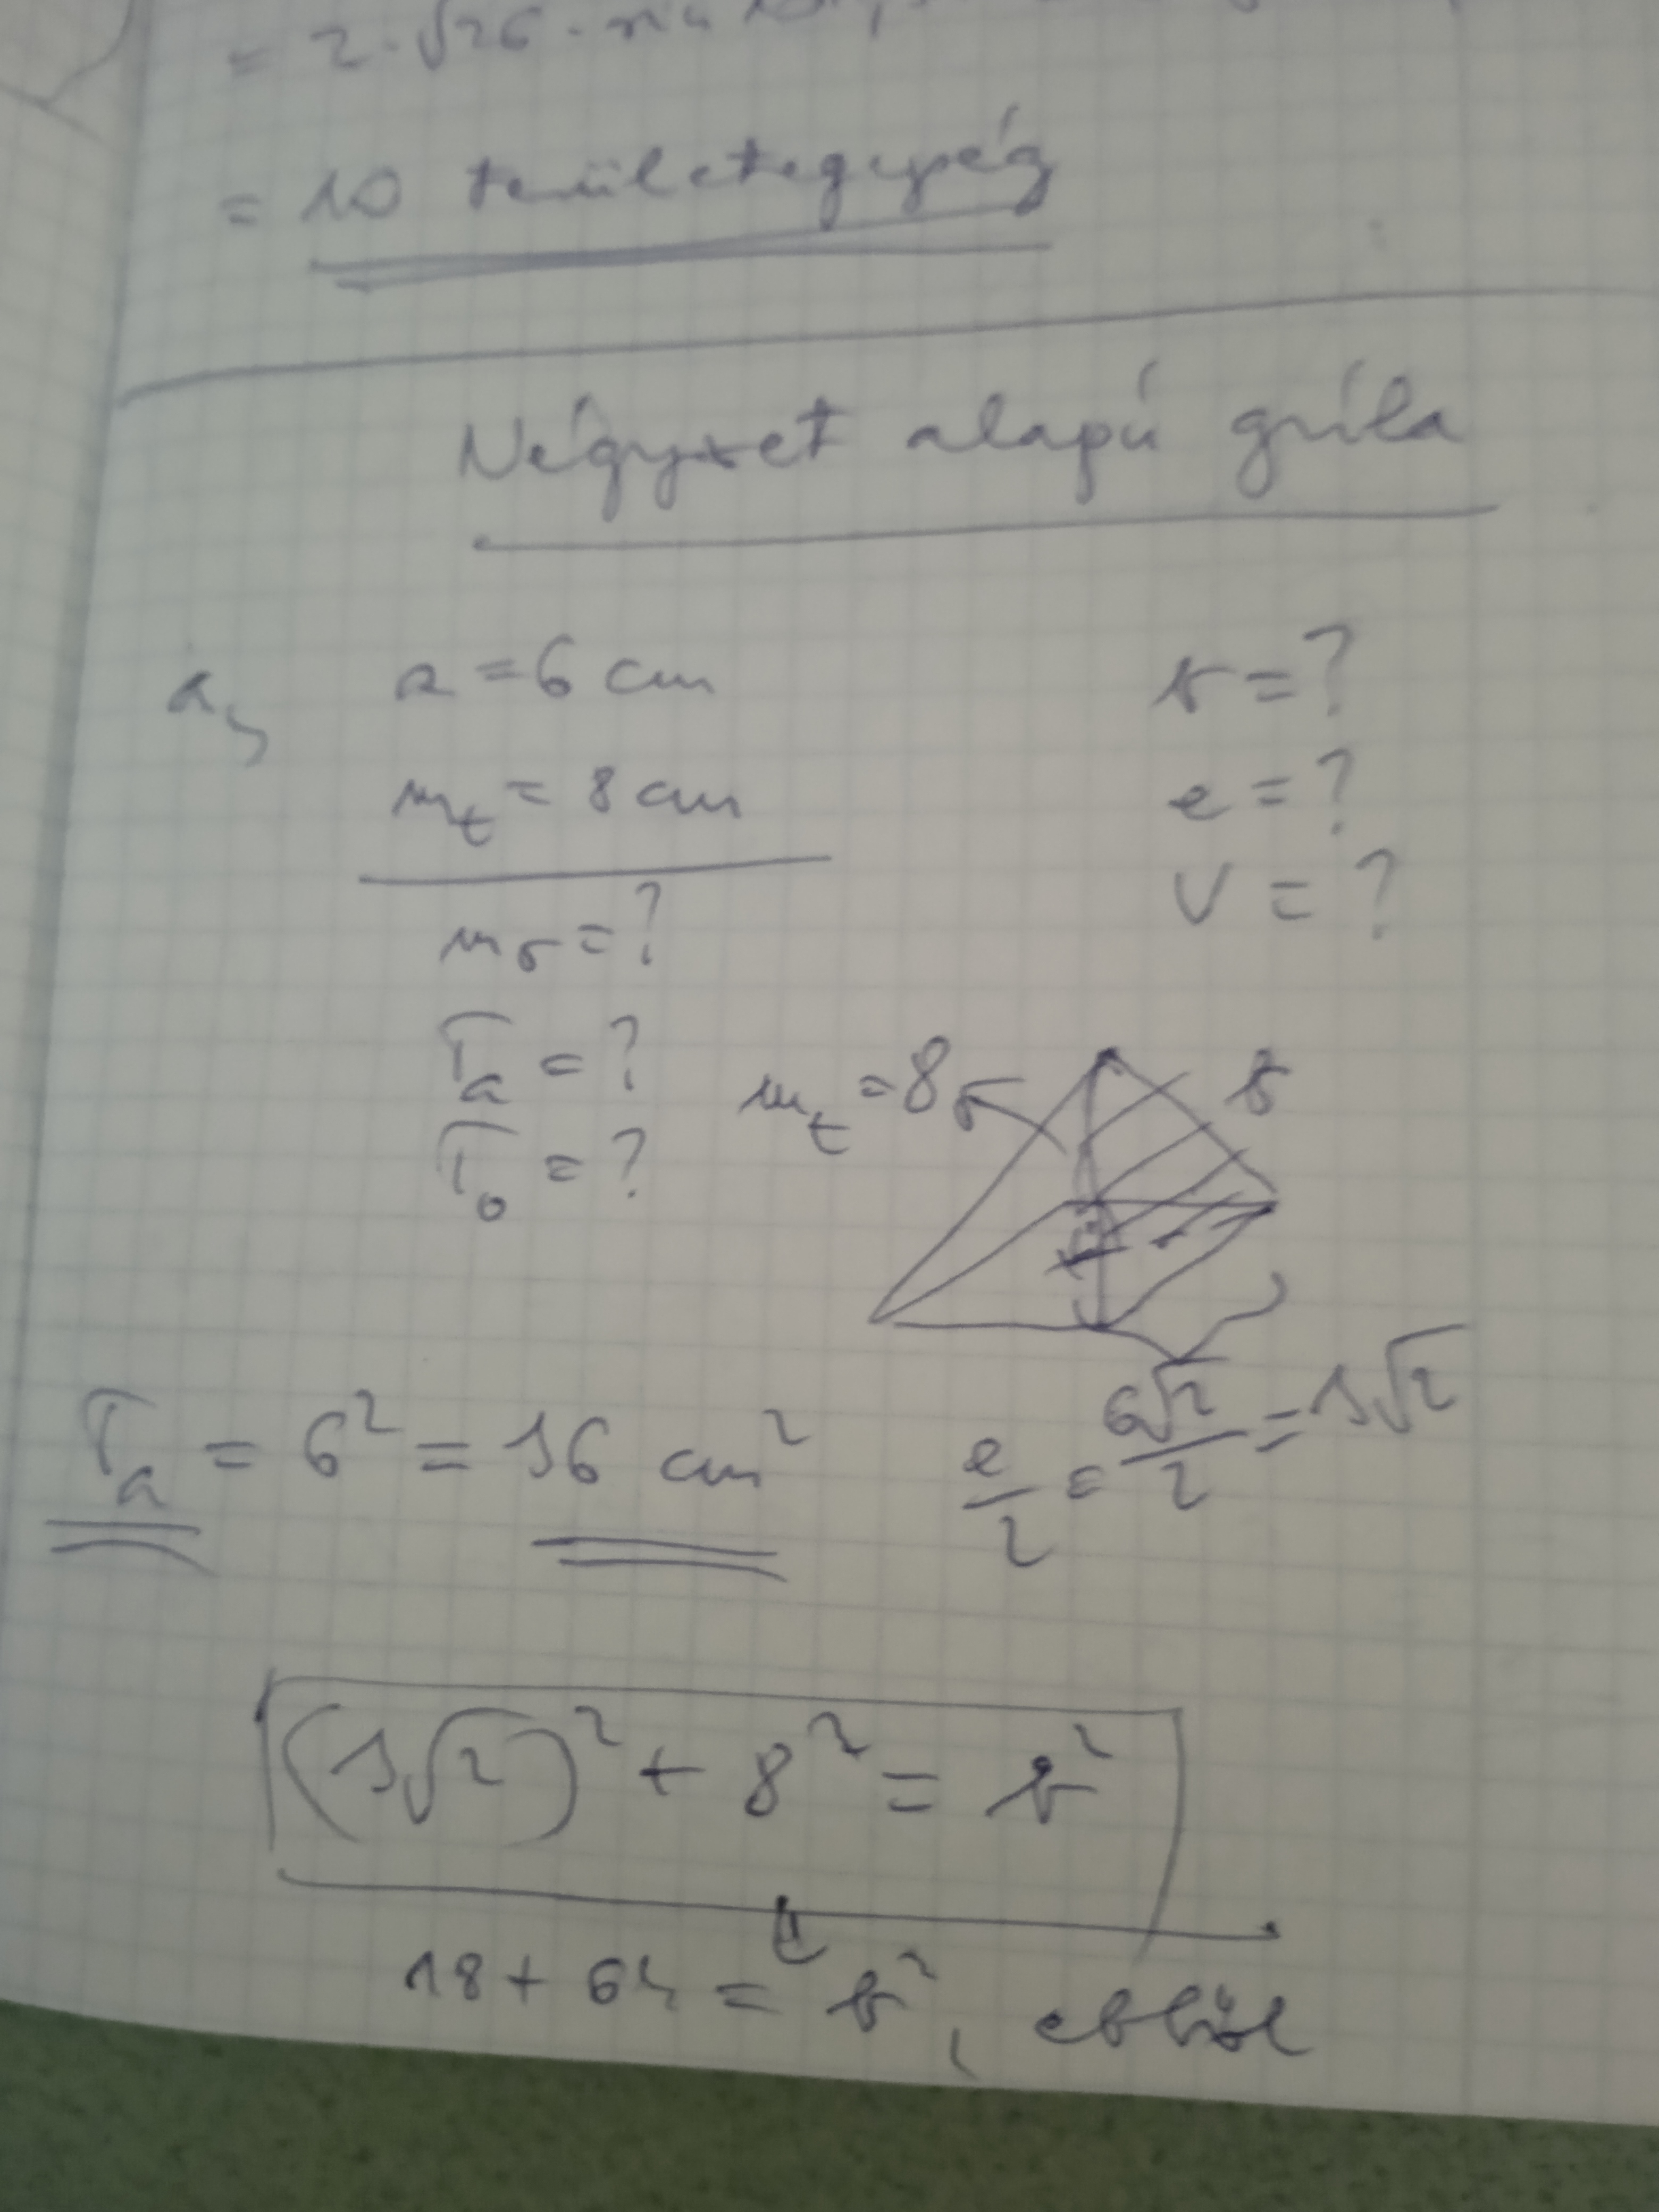 = 2·√26·
= 10 területegység
Négyzet alapú gúla
a, a = 6 cm b = ?
m_t = 8 cm e = ?
V = ?
m_o = ?
T_a = ?
T_o = ?
m_t = 8 b
T_a = 6² = 36 cm² e/2 = 6√2/2 = 3√2
(3√2)² + 8² = b²
18 + 64 = b², ebből